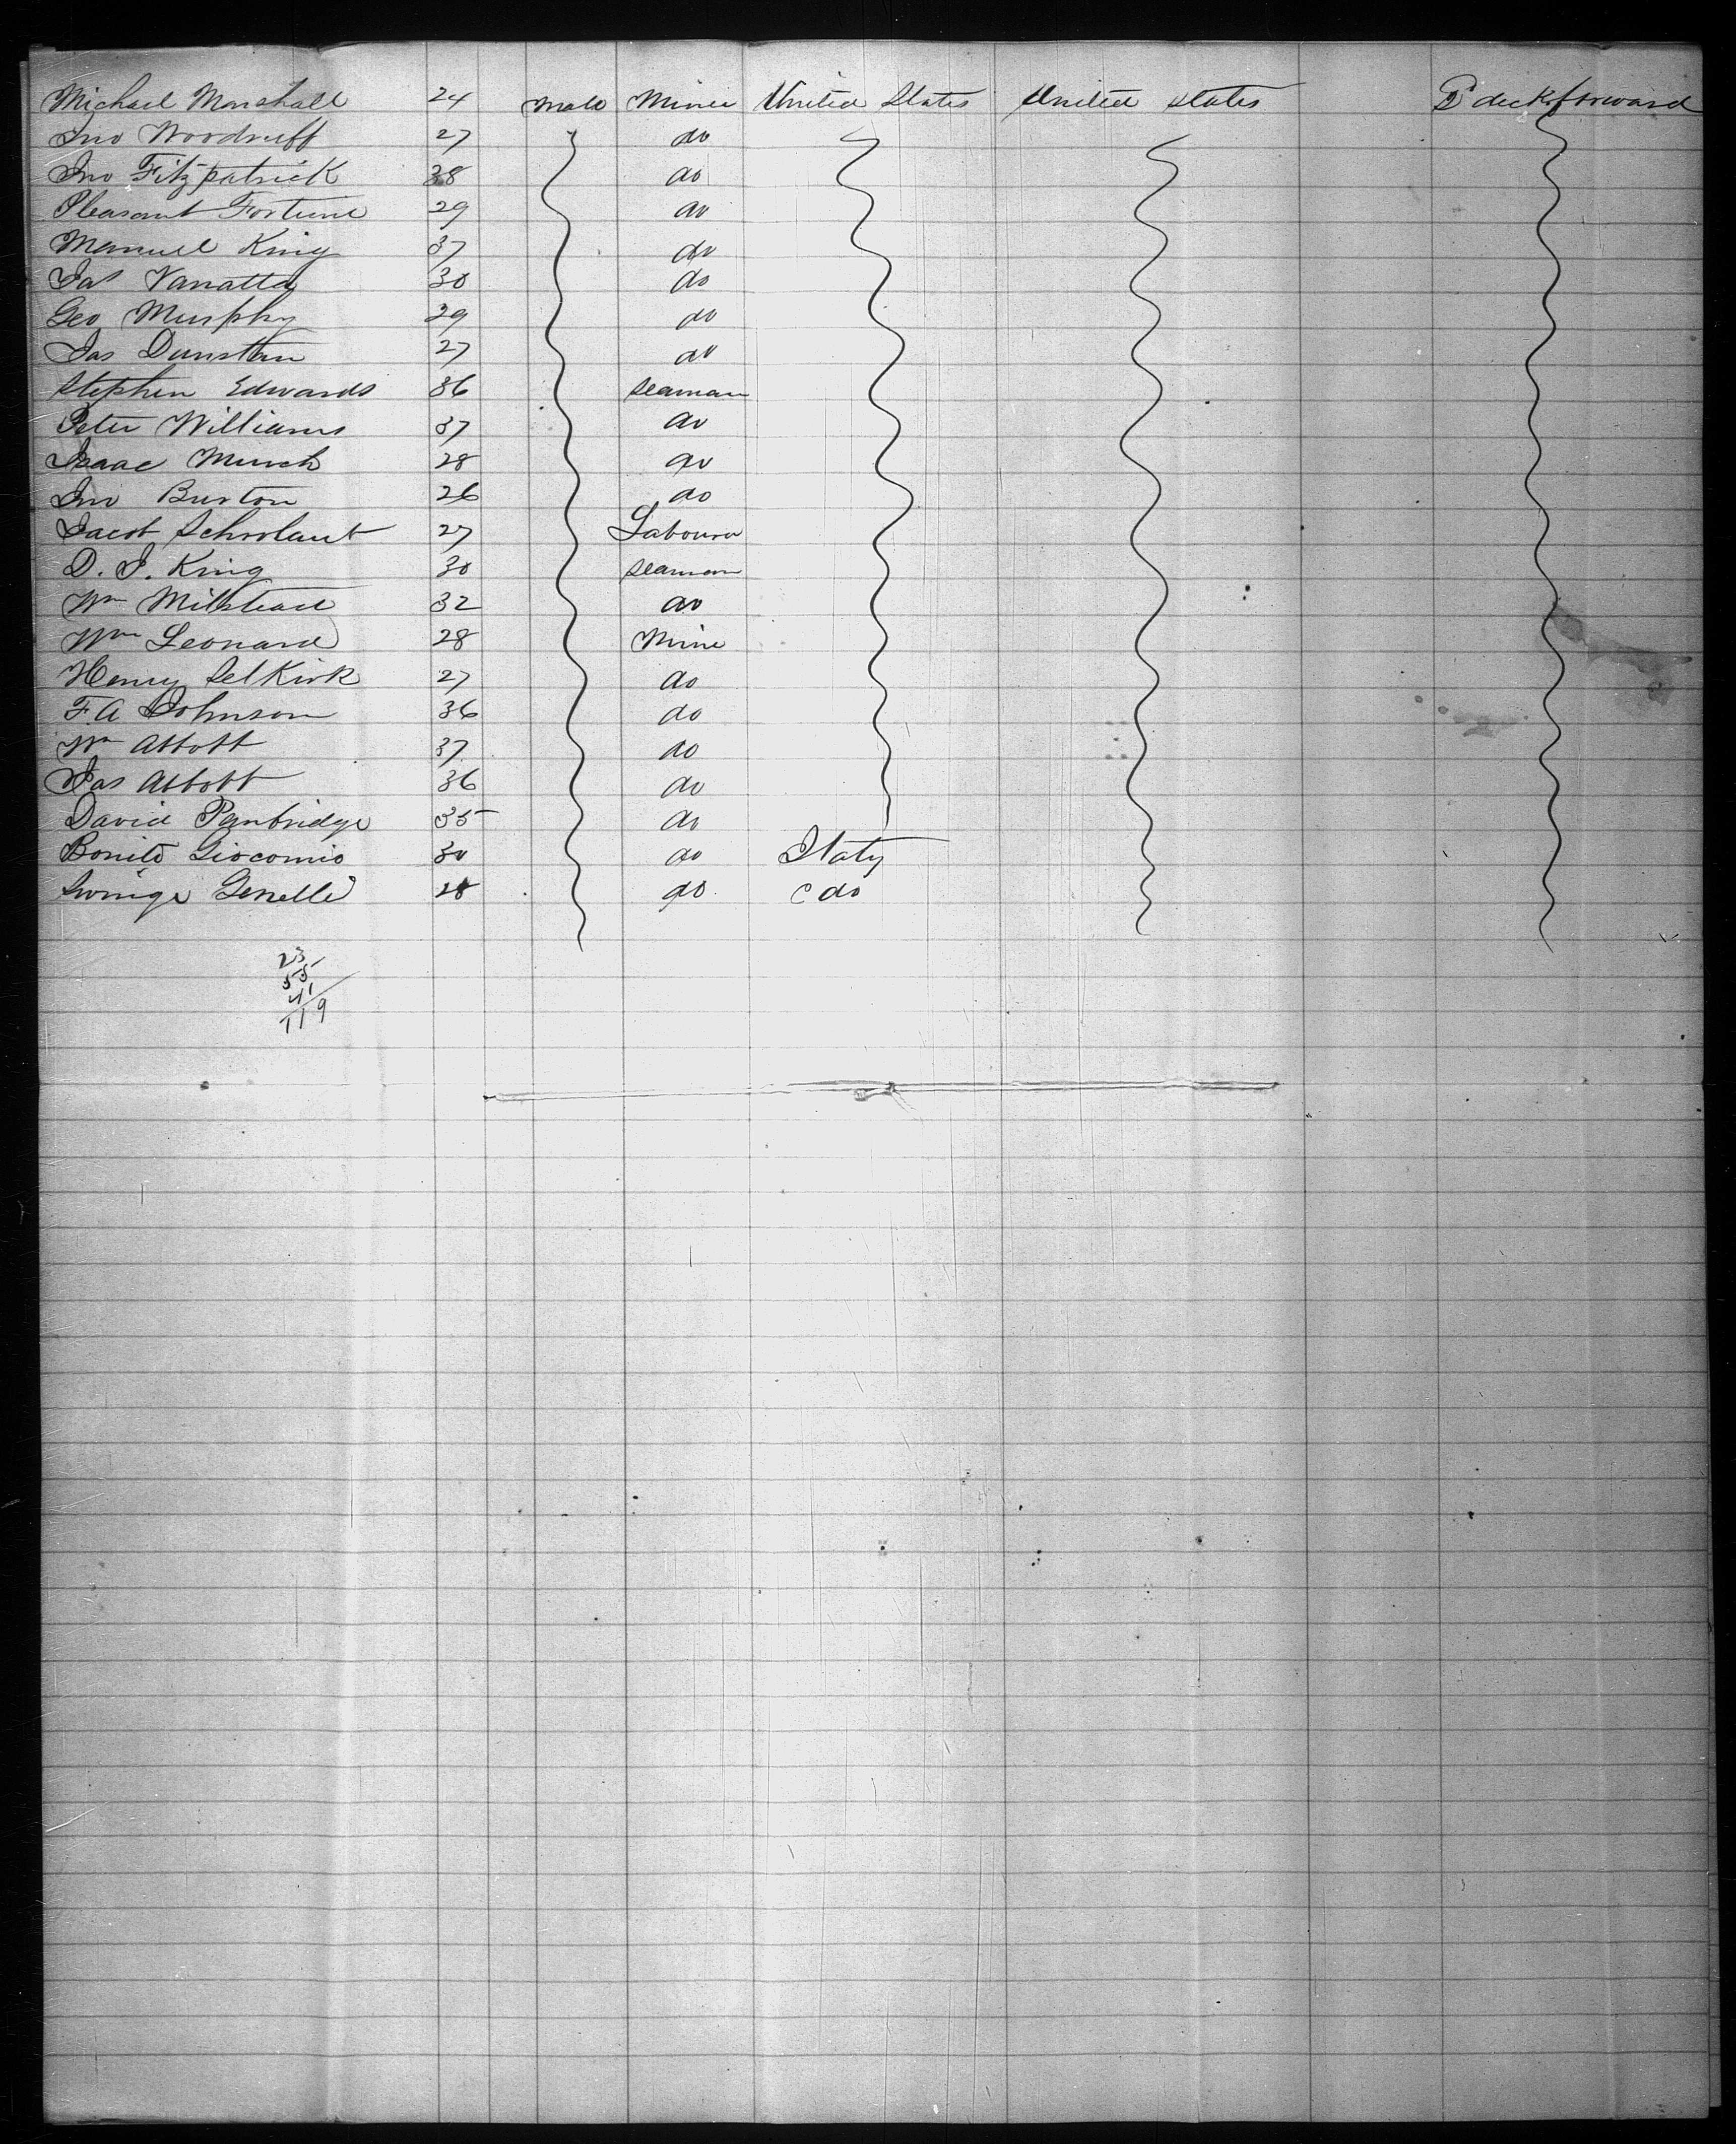 Michael Marshall 24 Male Miner United States United States deck forward
Jno Woodruff 27 do
Jno Fitzpatrick 38 do
Pleasant Fortune 29 do
Manuel King 37 do
Jas Vanatta 30 do
Geo Murphy 29 do
Jas Dunstan 27 do
Stephen Edwards 36 Seaman
Peter Williams 37 do
Isaac Munch 28 do
Jno Burton 26 do
Jacob 27 Labourer
D. J. King 30 Seaman
Wm Milstead 32 do
Wm Leonard 28 Mine
Henry Selkirk 27 do
F. A Johnson 36 do
Wm Abbott 37 do
Jas Abbott 36 do
David Penbridge 35 do
Bonito Giocomio 30 do Italy
Genelli 28 do do
23
55
41
119